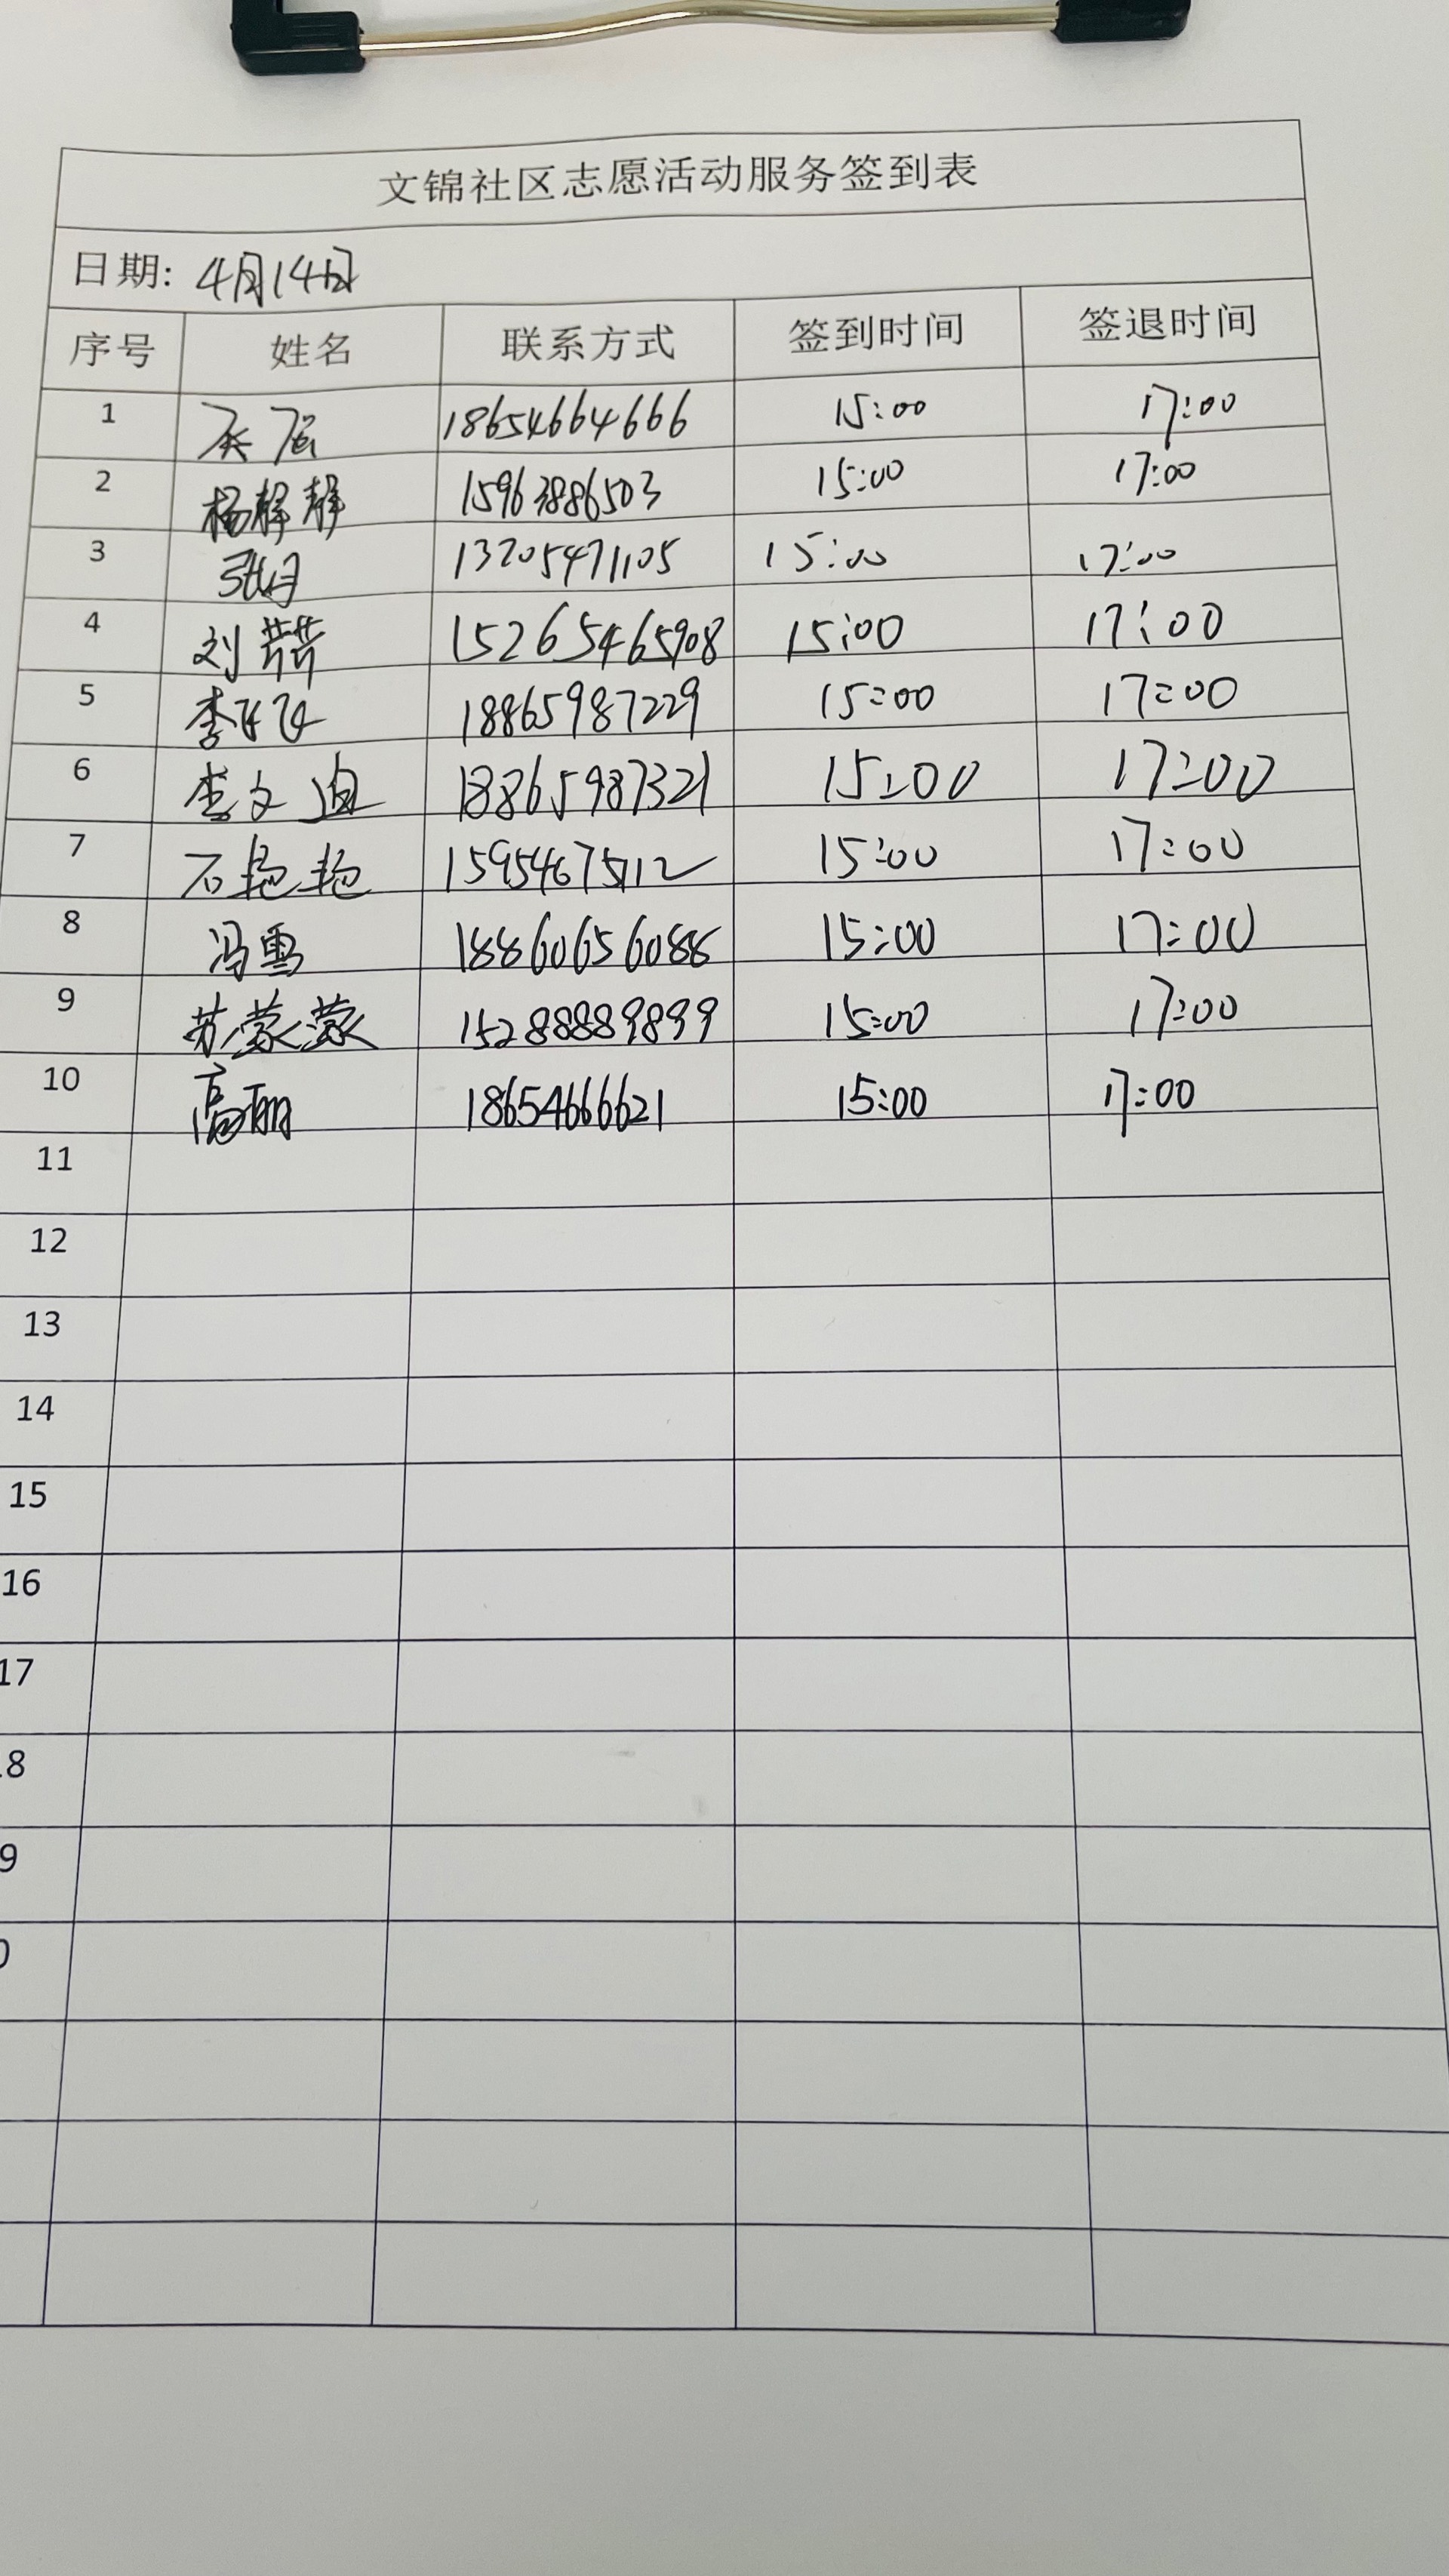 文锦社区志愿活动服务签到表
日期: 4月14日
序号 姓名 联系方式 签到时间 签退时间
1 18654664666 15:00 17:00
2 杨静静 15963886503 15:00 17:00
3 13205471105 15:00 17:00
4 刘 15265465908 15:00 17:00
5 李飞飞 18865987229 15:00 17:00
6 李文迪 18865987321 15:00 17:00
7 石艳艳 15954675112 15:00 17:00
8 冯雪 18860656088 15:00 17:00
9 苏蒙蒙 15288889899 15:00 17:00
10 高丽 18654666621 15:00 17:00
11
12
13
14
15
16
17
8
9
0